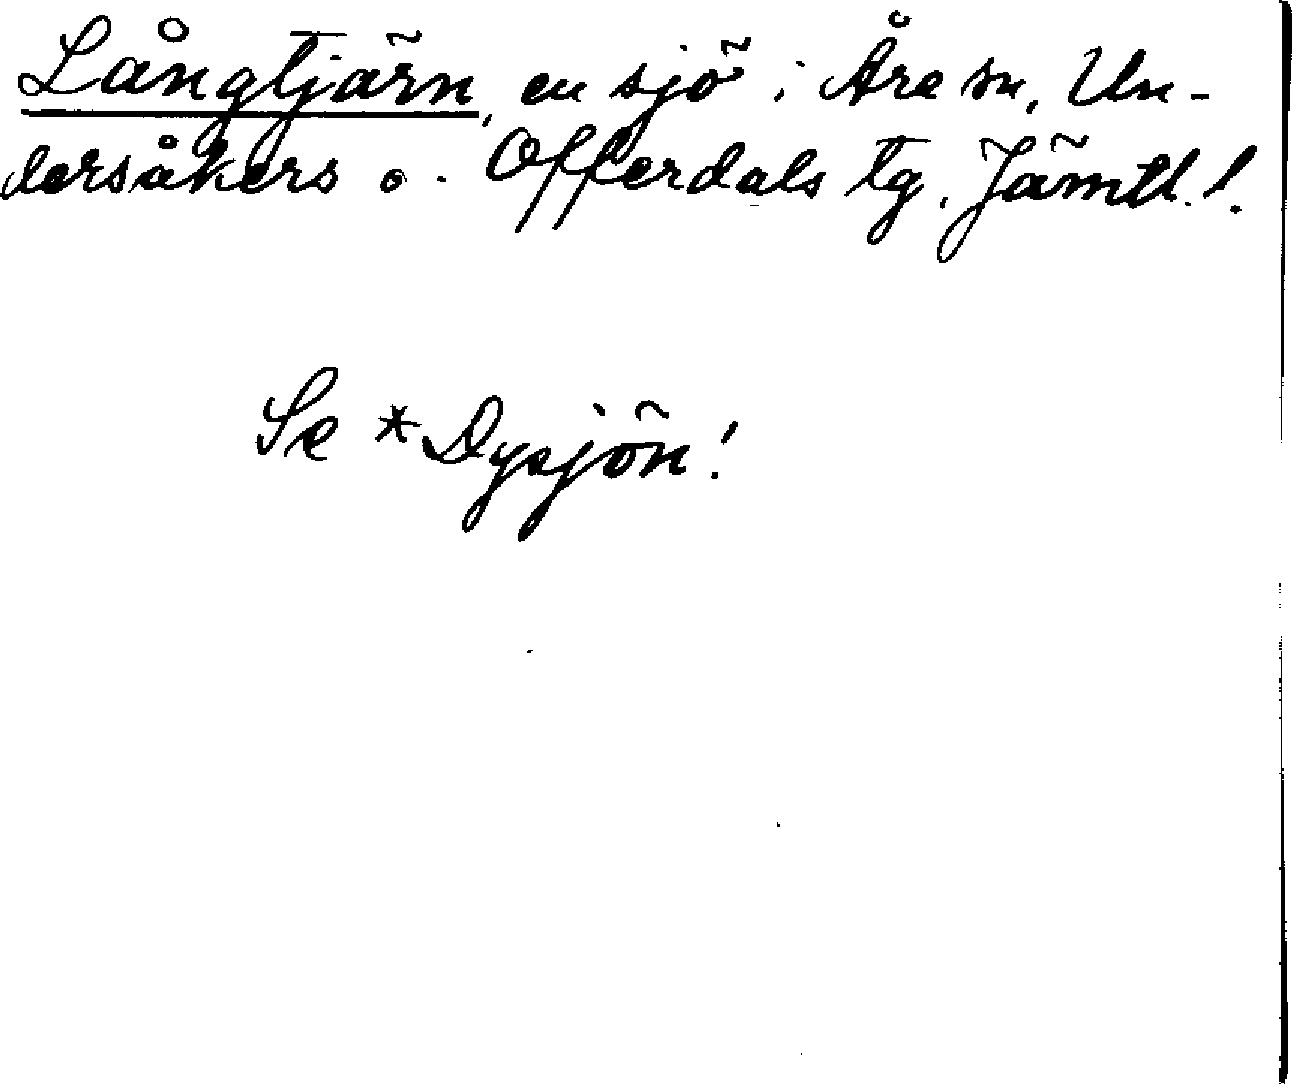 Långtjärn, en sjö i Åre sn, Un-
dersåkers o. Offerdals tg, Jämtl. l.
Se *Dysjön!